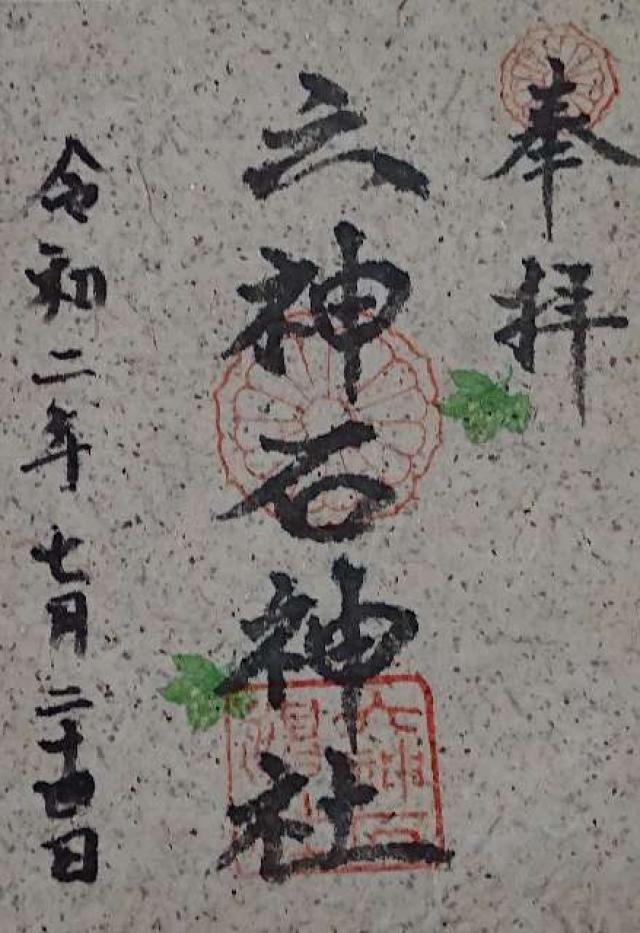 奉拝
六神石神社
令和二年七月二十四日